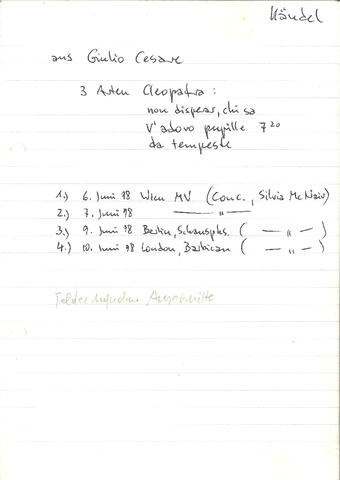 Händel
aus Giulio Cesare
3 Arien Cleopatra :
non disperar, chi sa
V'adoro pupille 7 20
da tempeste
1.) 6. Juni 98 Wien MV (Conc., Silvia McNair)
2.) 7. Juni 98 — " —
3.) 9. Juni 98 Berlin, Schausphs. ( — " — )
4.) 10. Juni 98 London, Barbican ( — " — )